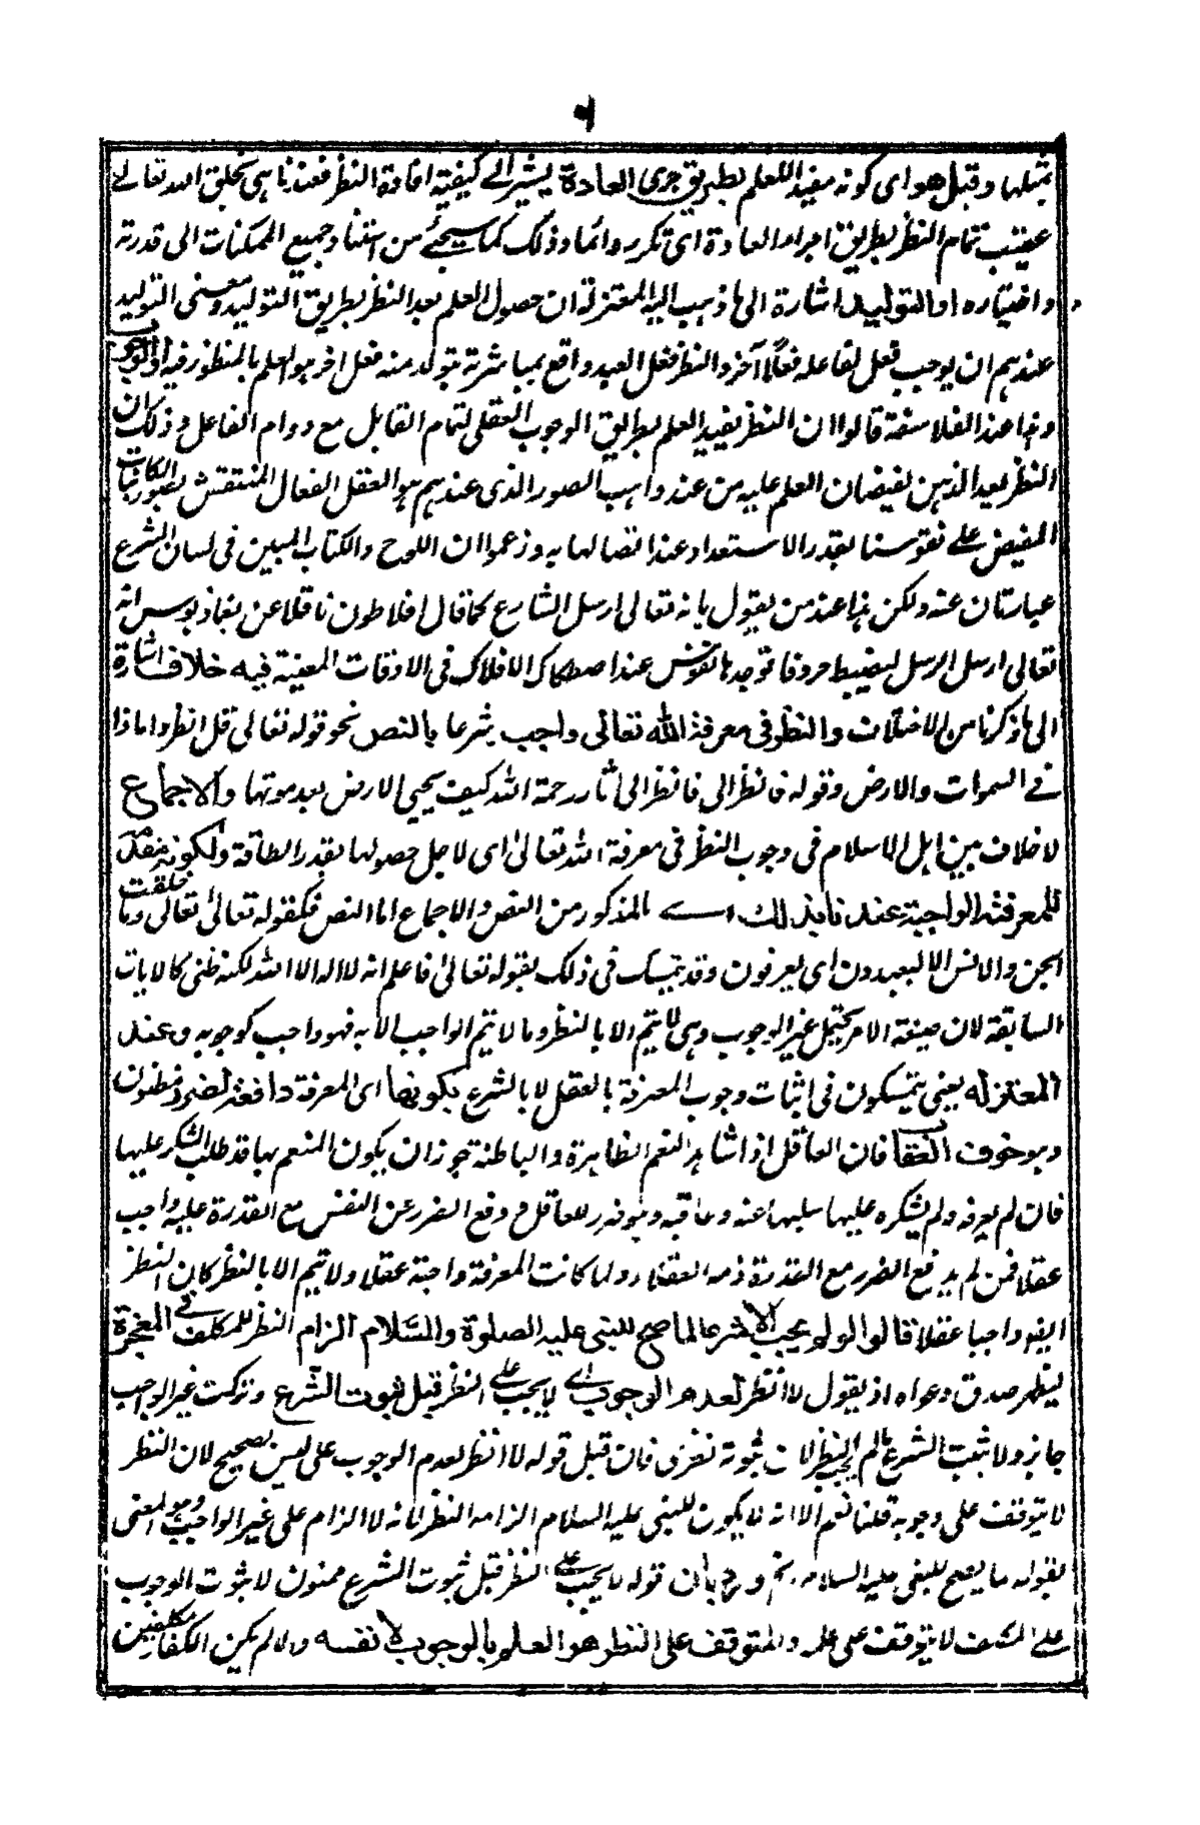 ٦
بمثلها وقيل هو اى كونه مفيدا للعلم بطريق جرى العادة يشير الى كيفية افادة النظر فعندنا هى بخلق الله تعالى
عقيب تمام النظر بطريق اجراء العادة اى تكرره دائما وذلك كما سيجئ من استناد جميع الممكنات الى قدرته
واختياره او التوليد اشارة الى ما ذهب اليه المعتزلة ان حصول العلم بعد النظر بطريق التوليد ومعنى التوليد
عندهم ان يوجب فعل لفاعله فعلا آخر والنظر فعل العبد واقع بمباشرته يتولد منه فعل اخر هو العلم بالمنظور فيه او الوجوب
وهذا عند الفلاسفة قالوا ان النظر يفيد العلم بطريق الوجوب العقلى لتمام القابل مع دوام الفاعل وذلك ان
النظر يعد الذهن لفيضان العلم عليه من عند واهب الصور الذى عندهم هو العقل الفعال المنتقش بصور الكائنات
المفيض على نفوسنا بقدر الاستعداد عند اتصالها به وزعموا ان اللوح والكتاب المبين فى لسان الشرع
عبارتان عنه ولكن هذا عند من يقول بانه تعالى ارسل الشارع كما قال افلاطون ناقلا عن انه
تعالى ارسل الرسل ليضبط حروفا توجدها نفوس عند اصطكاك الافلاك فى الاوقات المعينة فيه خلاف اشارة
الى ما ذكرنا من الاختلاف والنظر فى معرفة الله تعالى واجب شرعا بالنص نحو قوله تعالى قل انظروا ماذا
فى السموات والارض وقوله فانظر الى فانظر الى آثار رحمة الله كيف يحيى الارض بعد موتها والاجماع
لا خلاف بين اهل الاسلام فى وجوب النظر فى معرفة الله تعالى اى لاجل حصولها بقدر الطاقة ولكونه مقدمة
للمعرفة الواجبة عندنا بذلك اے المذكور من النص والاجماع اما النص فكقوله تعالى تعالى وما خلقت
الجن والانس الا ليعبدون اى ليعرفون وقد يتمسك فى ذلك بقوله تعالى فاعلم انه لا اله الا الله لكنه ظنى كالايات
السابقة لان صيغة الامر يحتمل غير الوجوب وهى لا يتم الا بالنظر وما لا يتم الواجب الا به فهو واجب كوجوبه وعند
المعتزله يعنى يتمسكون فى اثبات وجوب المعرفة بالعقل لا بالشرع بكونها اى المعرفة دافعة لضرر مظنون
وهو خوف العقاب فان العاقل اذا شاهد النعم الظاهرة والباطنة جوز ان يكون المنعم بها قد طلب الشكر عليها
فان لم يعرفه ولم يشكره عليها سلبها عنه وعاقبه وهو ضرر للعاقل ودفع الضرر عن النفس مع القدرة عليه واجب
عقلا فمن لم يدفع الضرر مع القدرة ذمه العقلاء ولما كانت المعرفة واجبة عقلا ولا يتم الا بالنظر كان النظر
ايضا واجبا عقلا قالوا لو لم يجب الا شرعا لما صح للنبى عليه الصلوة والسلام الزام النظر للمكلف فى المعجزة
ليظهر صدق دعواه اذ يقول لا انظر لعدم الوجوب اے لا يجب على النظر قبل ثبوت الشرع وتركت غير الواجب
جايز ولا يثبت الشرع ما لم يجب النظر لان ثبوته نظرى فان قيل قوله لا انظر لعدم الوجوب على ليس بصحيح لان النظر
لا يتوقف على وجوبه قلنا نعم الا انه لا يكون للنبى عليه السلام الزامه النظر لانه لا الزام على غير الواجب وهو المعنى
بقوله ما يصح للنبى عليه السلام ورد بان قوله لا يجب على النظر قبل ثبوت الشرع ممنوع لا ثبوت الوجوب
على المكلف لا يتوقف على علمه والمتوقف على النظر هو العلم بالوجوب لا نفسه والا لم يكن الكفار مكلفين